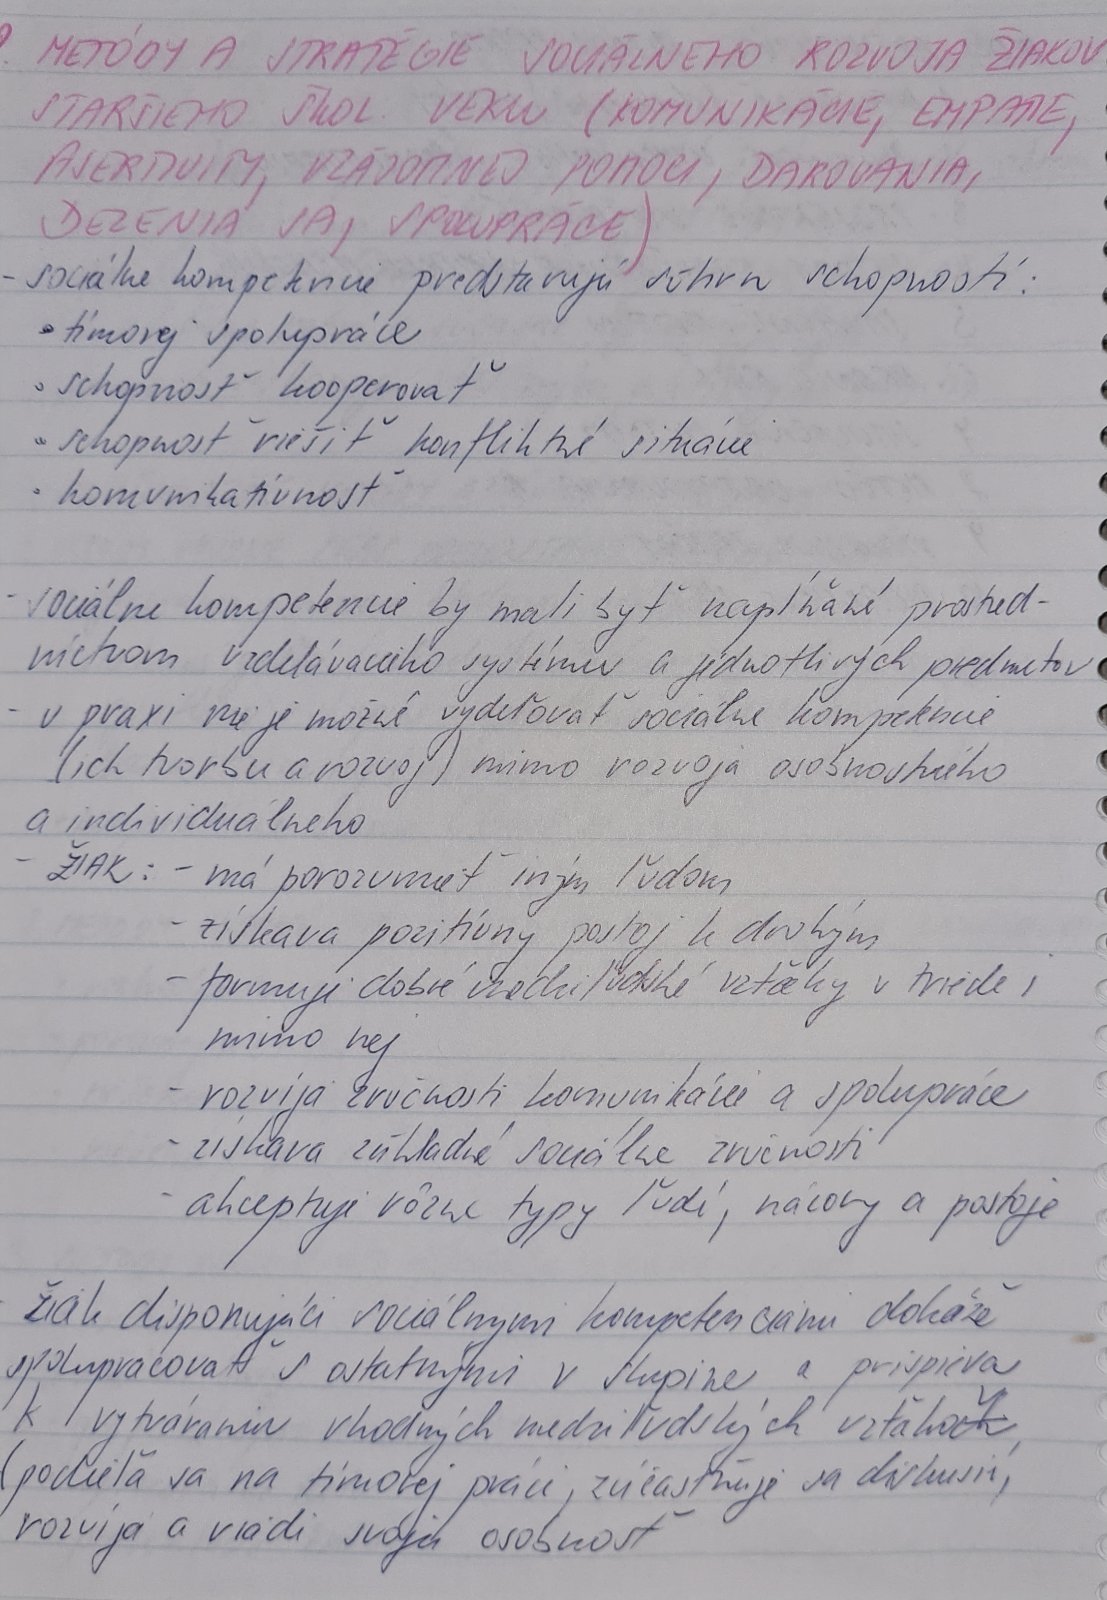 . METÓDY A STRATÉGIE SOCIÁLNEHO ROZVOJA ŽIAKOV
STARŠIEHO ŠKOL. VEKU (KOMUNIKÁCIE, EMPATIE,
ASERTIVITY, VZÁJOMNEJ POMOCI, DAROVANIA,
DELENIA SA, SPOLUPRÁCE)
- sociálne kompetencie predstavujú súhrn schopností:
• tímovej spolupráce
• schopnosť kooperovať
• schopnosť riešiť konfliktné situácie
• komunikatívnosť
- sociálne kompetencie by mali byť napĺňané prostred-
níctvom vzdelávacieho systému a jednotlivých predmetov
- v praxi nie je možné vydeľovať sociálne kompetencie
(ich tvorbu a rozvoj) mimo rozvoja osobnostného
a individuálneho
- ŽIAK: - má porozumieť iným ľuďom
- získava pozitívny postoj k druhým
- formuje dobré medziľudské vzťahy v triede i
mimo nej
- rozvíja zručnosti komunikácie a spolupráce
- získava základné sociálne zručnosti
- akceptuje rôzne typy ľudí, názory a postoje
- žiak disponujúci sociálnymi kompetenciami dokáže
spolupracovať s ostatnými v skupine a prispieva
k vytváraniu vhodných medziľudských vzťahov
(podieľa sa na tímovej práci, zúčastňuje sa diskusií,
rozvíja a riadi svoju osobnosť